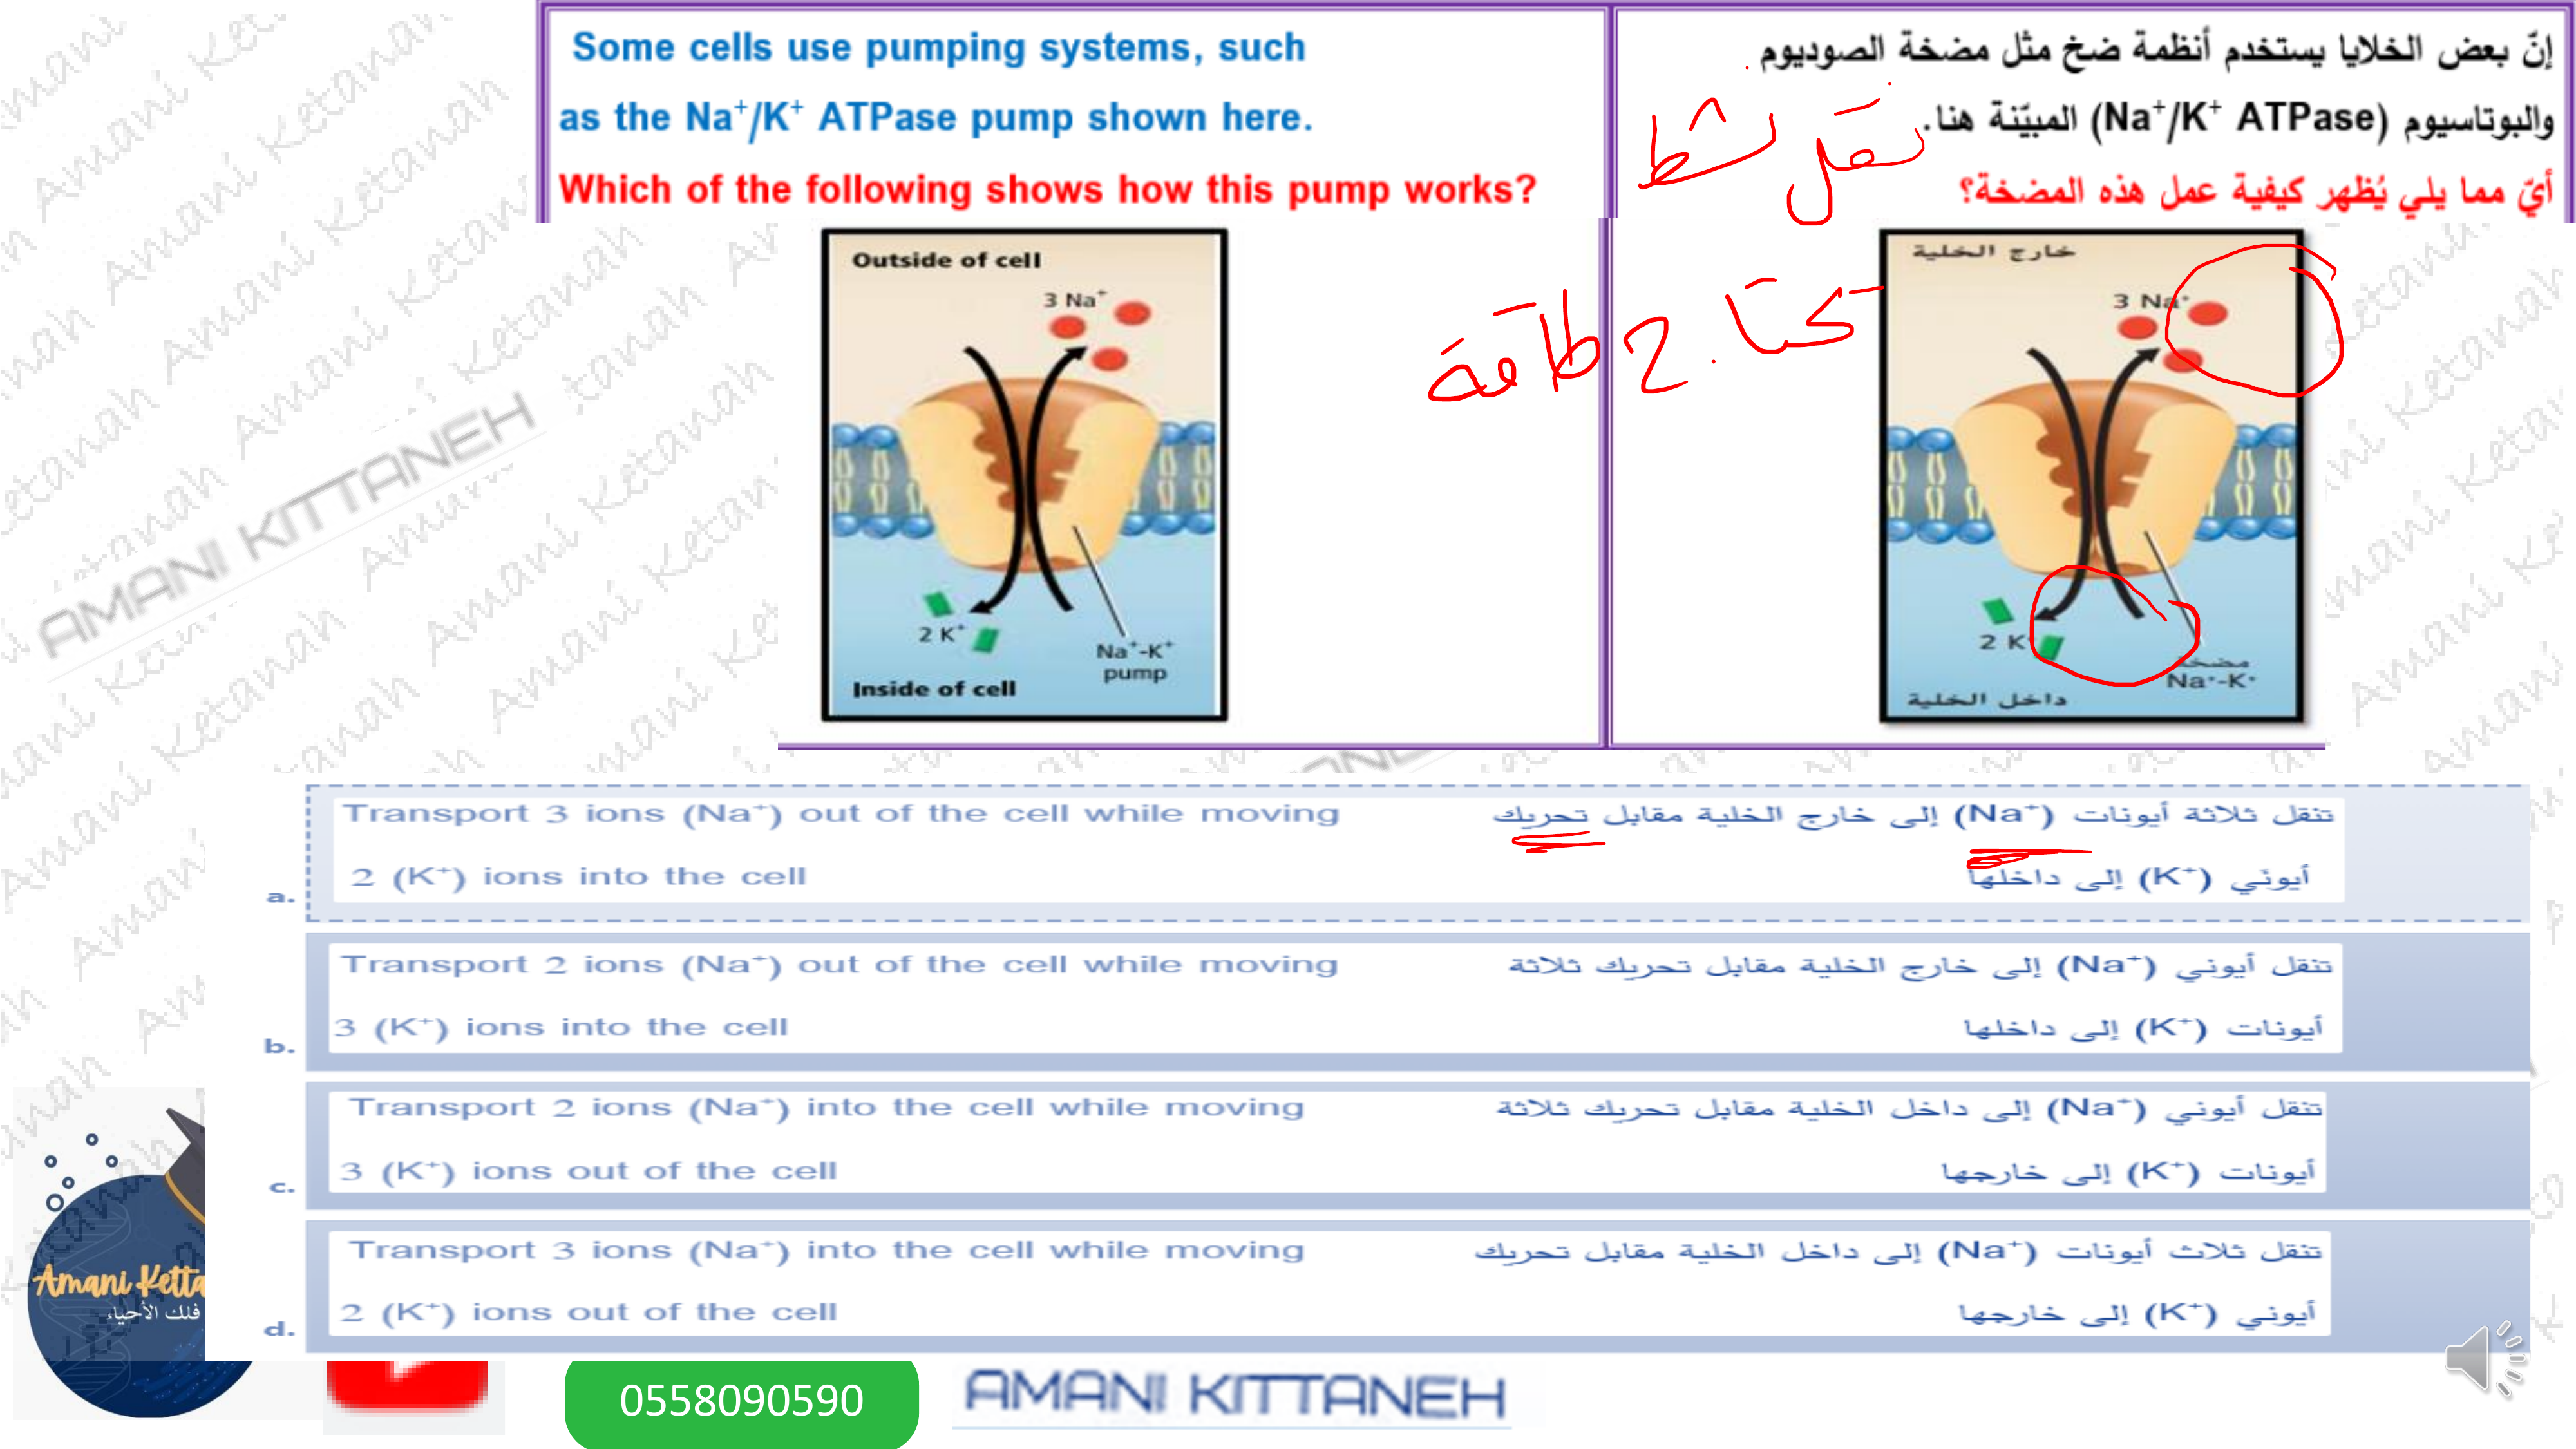 Some cells use pumping systems, such
as the Na⁺/K⁺ ATPase pump shown here.
Which of the following shows how this pump works?
إنّ بعض الخلايا يستخدم أنظمة ضخ مثل مضخة الصوديوم
والبوتاسيوم (Na⁺/K⁺ ATPase) المبيّنة هنا.
أيّ مما يلي يُظهر كيفية عمل هذه المضخة؟
نقل نشط
طاقة
Outside of cell
3 Na⁺
2 K⁺
Na⁺-K⁺
pump
Inside of cell
خارج الخلية
3 Na⁺
2 K
مضخة
Na⁺-K⁺
داخل الخلية
a. Transport 3 ions (Na⁺) out of the cell while moving
2 (K⁺) ions into the cell
تنقل ثلاثة أيونات (Na⁺) إلى خارج الخلية مقابل تحريك
أيوني (K⁺) إلى داخلها
b. Transport 2 ions (Na⁺) out of the cell while moving
3 (K⁺) ions into the cell
تنقل أيوني (Na⁺) إلى خارج الخلية مقابل تحريك ثلاثة
أيونات (K⁺) إلى داخلها
c. Transport 2 ions (Na⁺) into the cell while moving
3 (K⁺) ions out of the cell
تنقل أيوني (Na⁺) إلى داخل الخلية مقابل تحريك ثلاثة
أيونات (K⁺) إلى خارجها
d. Transport 3 ions (Na⁺) into the cell while moving
2 (K⁺) ions out of the cell
تنقل ثلاث أيونات (Na⁺) إلى داخل الخلية مقابل تحريك
أيوني (K⁺) إلى خارجها
Amani Ketta
فلك الأحياء
0558090590
AMANI KITTANEH
AMANI KITTANEH
Amani Ketanah